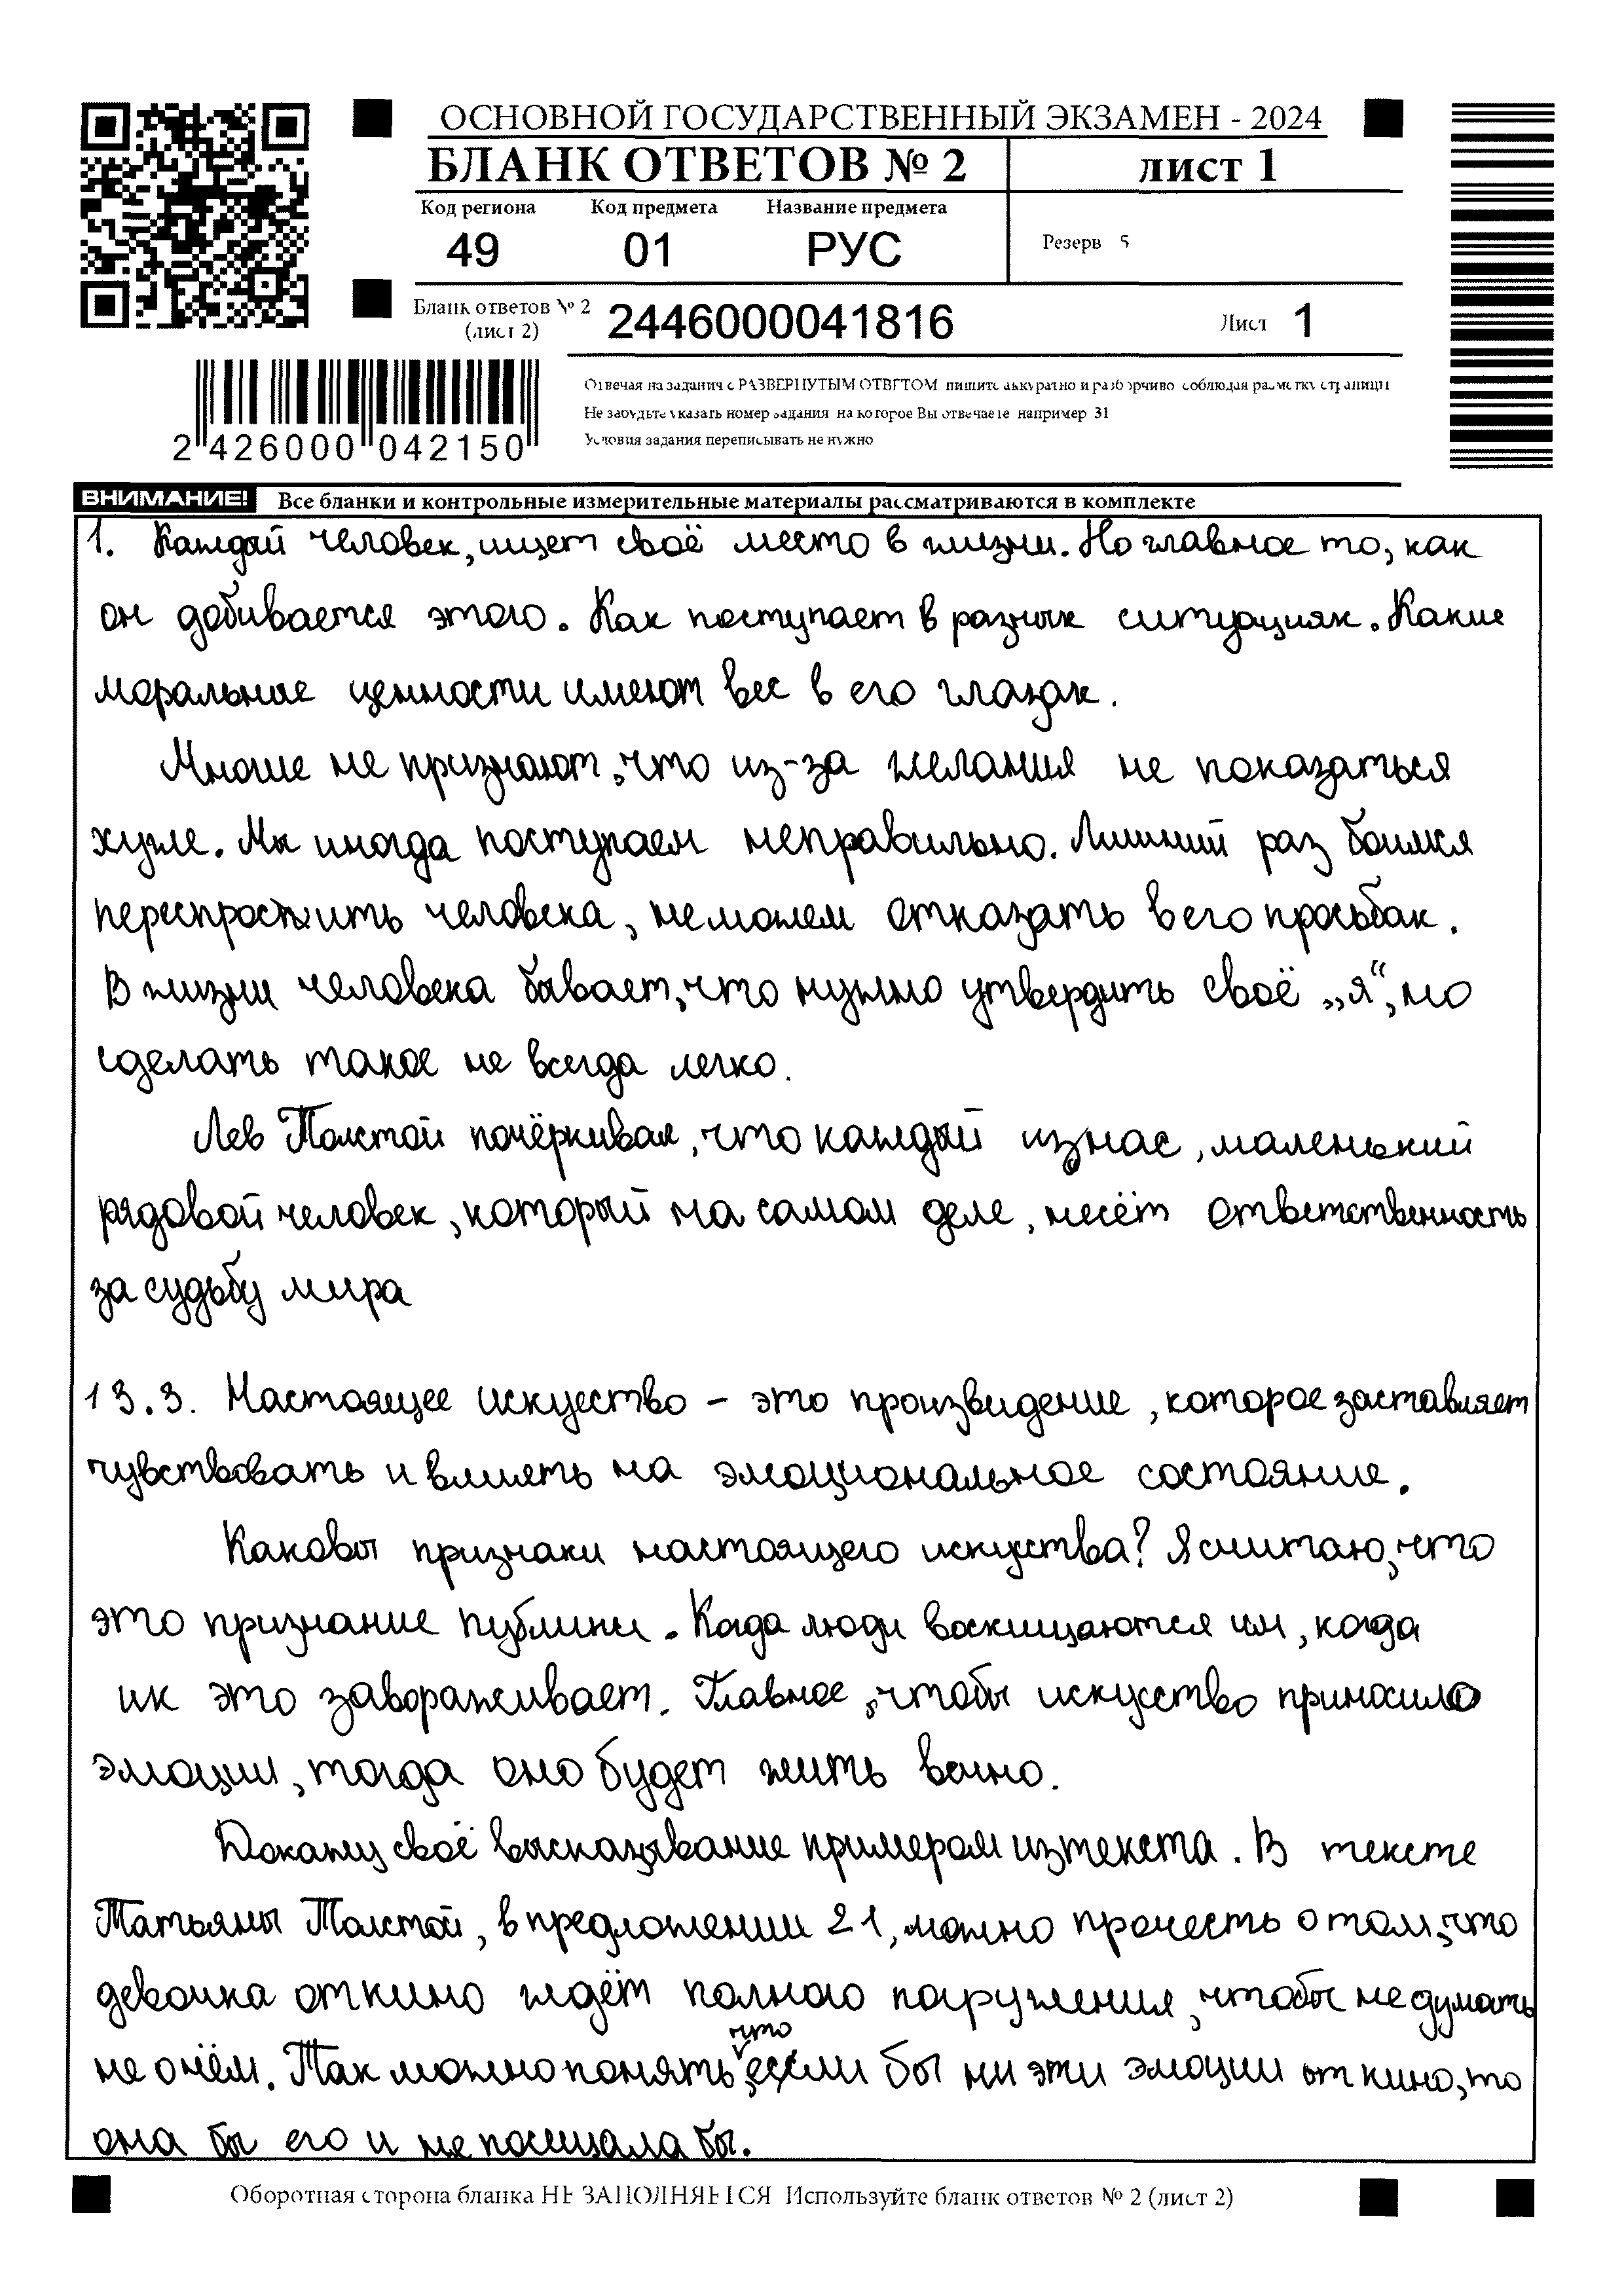 ОСНОВНОЙ ГОСУДАРСТВЕННЫЙ ЭКЗАМЕН - 2024
БЛАНК ОТВЕТОВ № 2
лист 1
Код региона Код предмета Название предмета
49 01 РУС
Резерв 5
Бланк ответов № 2
(лист 2)
2446000041816
Лист 1
2 426000 042150
Отвечая на задания с РАЗВЕРНУТЫМ ОТВЕТОМ пишите аккуратно и разборчиво соблюдая разметку страницы
Не забудьте указать номер задания на которое Вы отвечаете например 31
Условия задания переписывать не нужно
ВНИМАНИЕ! Все бланки и контрольные измерительные материалы рассматриваются в комплекте
1. Каждый человек, ищет своё место в жизни. Но главное то, как
он добивается этого. Как поступает в разных ситуациях. Какие
моральные ценности имеют вес в его глазах.
Многие не признают, что из-за желания не показаться
хуже. Мы иногда поступаем неправильно. Лишний раз боимся
переспросить человека, не можем отказать в его просьбах.
В жизни человека бывает, что нужно утвердить своё „я“, но
сделать такое не всегда легко.
Лев Толстой почёркивал, что каждый из нас, маленький
рядовой человек, который на самом деле, несёт ответственность
за судьбу мира
13.3. Настоящее искуество – это произвидение, которое заставляет
чувствовать и влиять на эмоциональное состояние.
Каковы признаки настоящего искуства? Я считаю, что
это признание публики. Когда люди восхищаются им, когда
их это завораживает. Главное, чтобы искусство приносило
эмоции, тогда оно будет жить вечно.
Докажу своё высказывание примером из текста. В тексте
Татьяны Толстой, в предложении 21, можно прочесть о том, что
девочка от кино ждёт полного погружения, чтобы не думать
не о чём. Так можно понять, что если бы ни эти эмоции от кино, то
она бы его и не посещала бы.
Оборотная сторона бланка НЕ ЗАПОЛНЯЕТСЯ Используйте бланк ответов № 2 (лист 2)